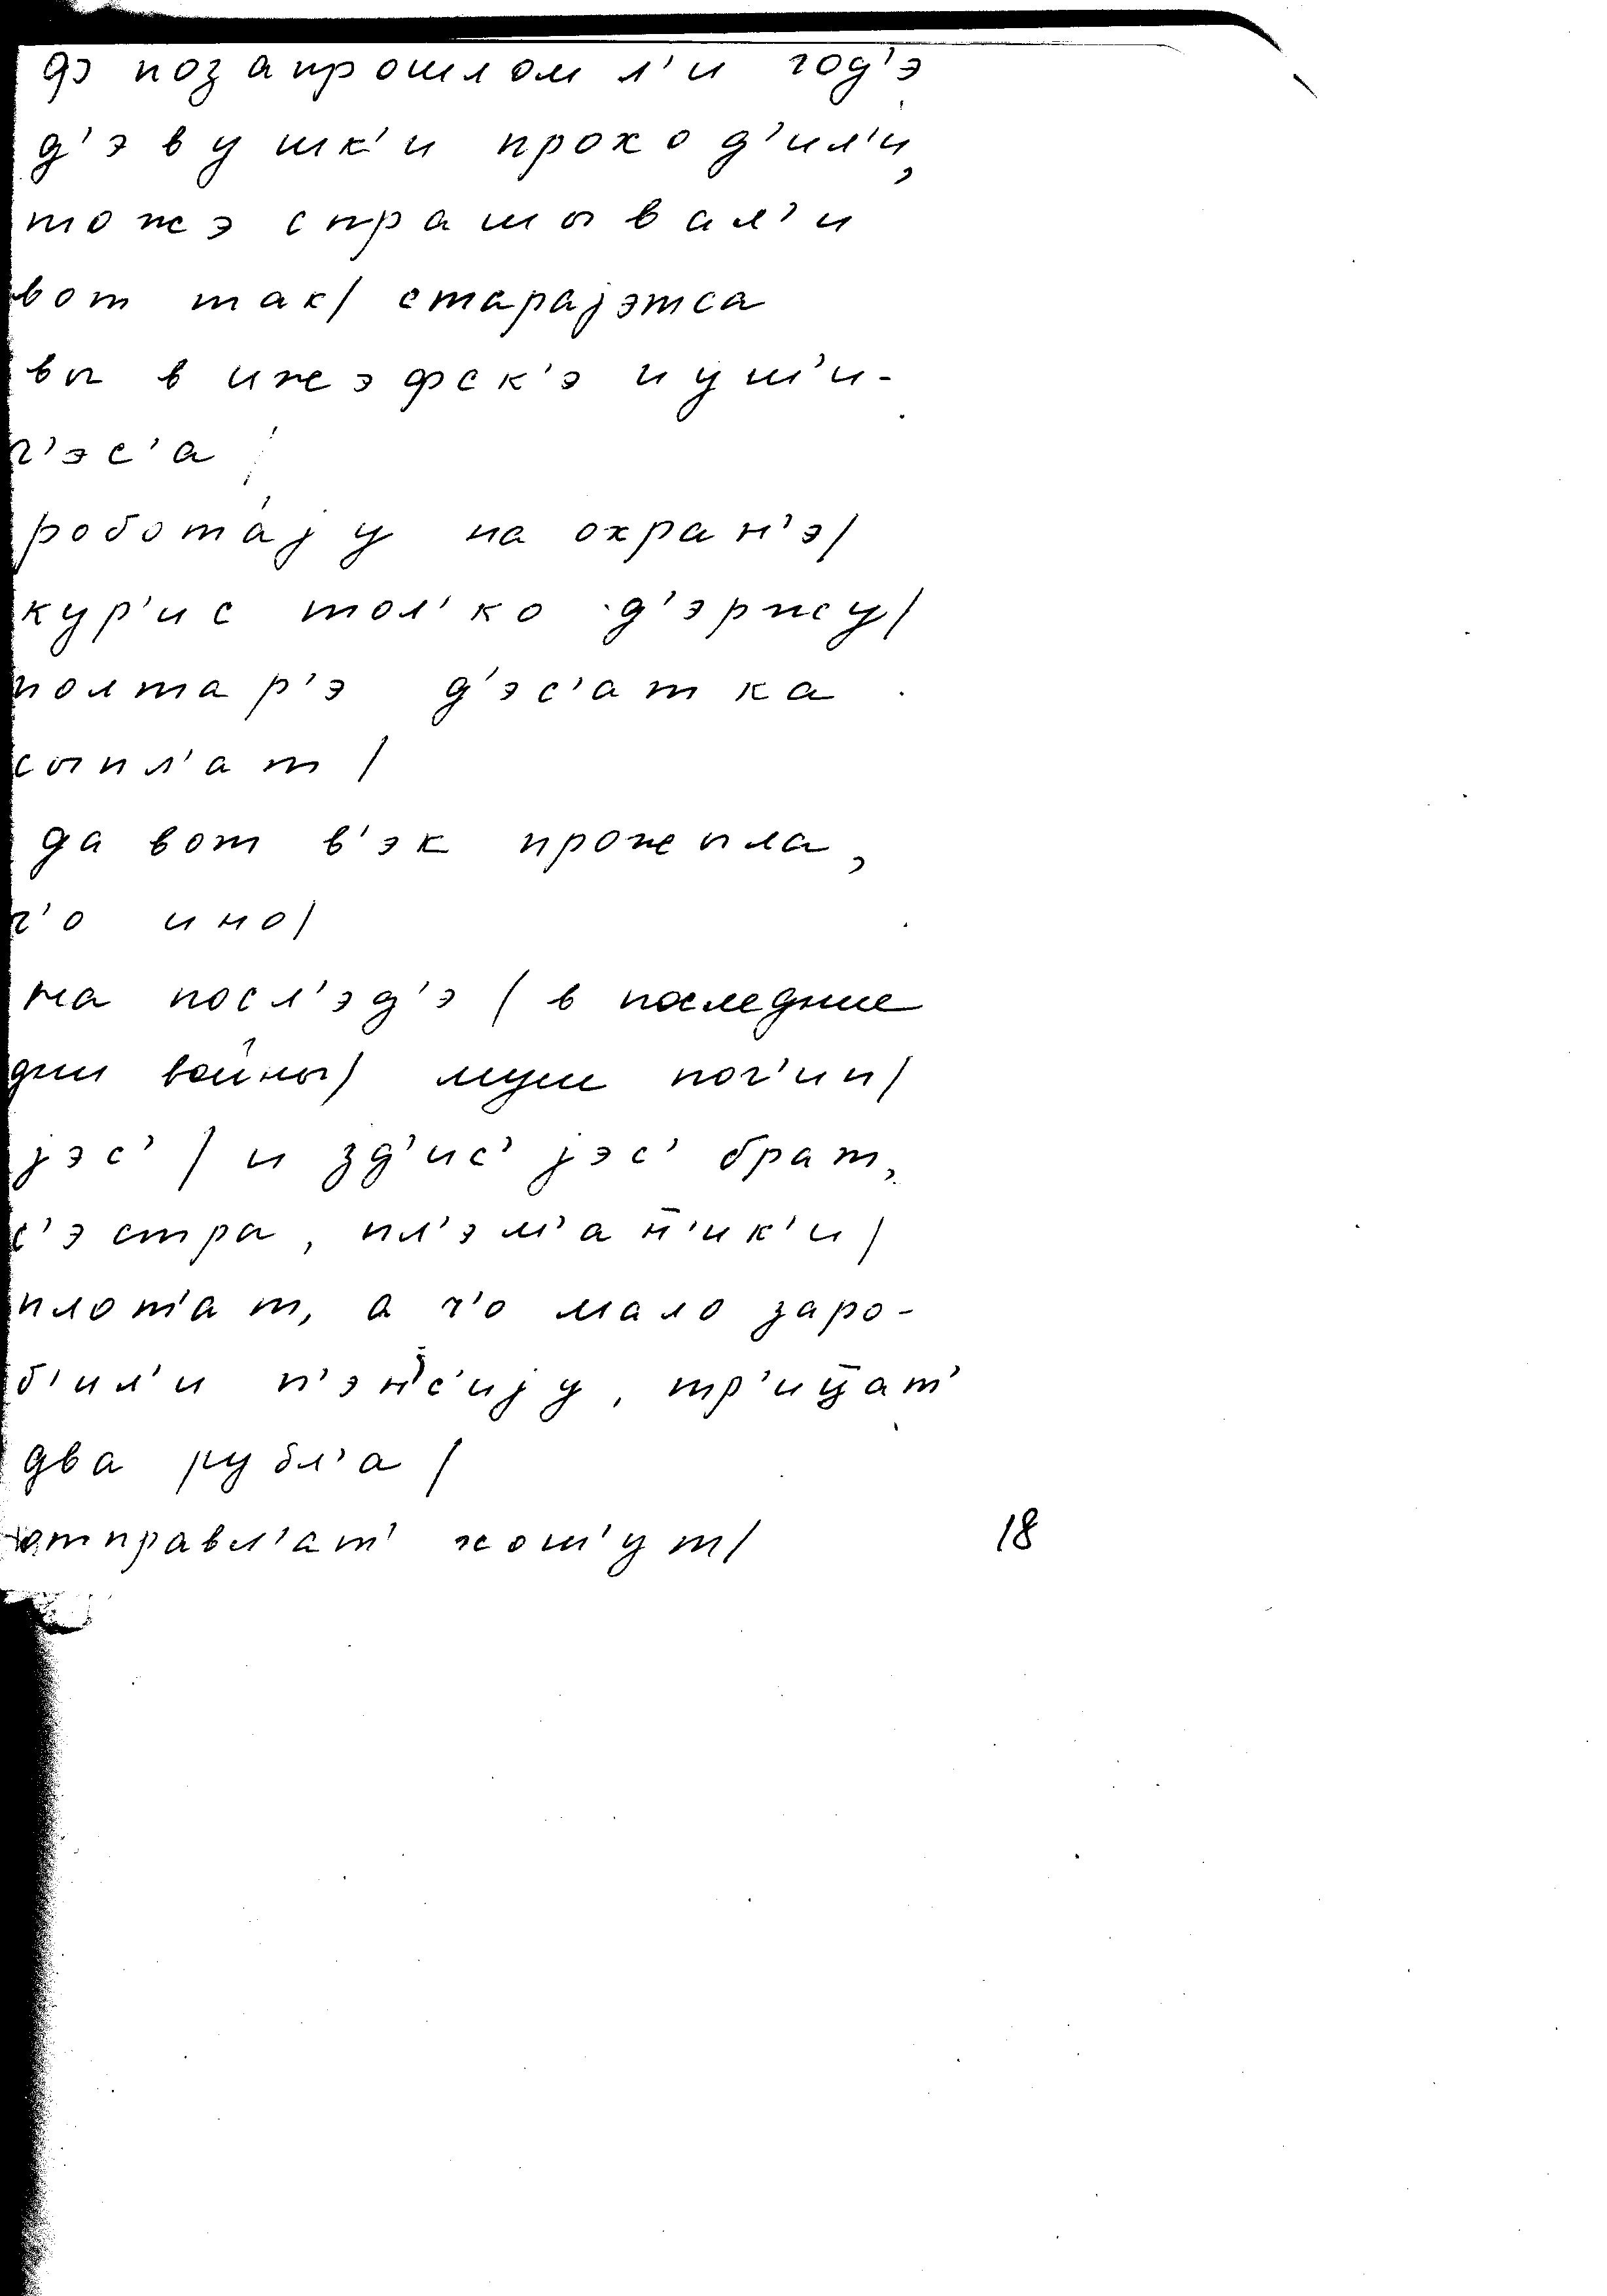 ф позапрошлом л'и год'э
д'эвушк'и проход'ил'и,
тожэ спрашывал'и
вот так/ старајэтса
вы в ижэфск'э иуш'и-
ч'эс'а/
роботају на охран'э/
кур'ис тол'ко д'эржу/
полтар'э д'эс'атка
сыпл'ат/
да вот в'эк прожыла,
ч'о ино/
на посл'эд'э (в последние
дни войны) муш пог'ип/
јэс'/ и зд'ис' јэс' брат,
с'эстра, пл'эм'ан̄'ик'и/
плот'ат, а ч'о мало заро-
б'ил'и п'эн'с'ију, тр'иц̄ат'
два рубл'а/
отправл'ат' хот'ут/
18